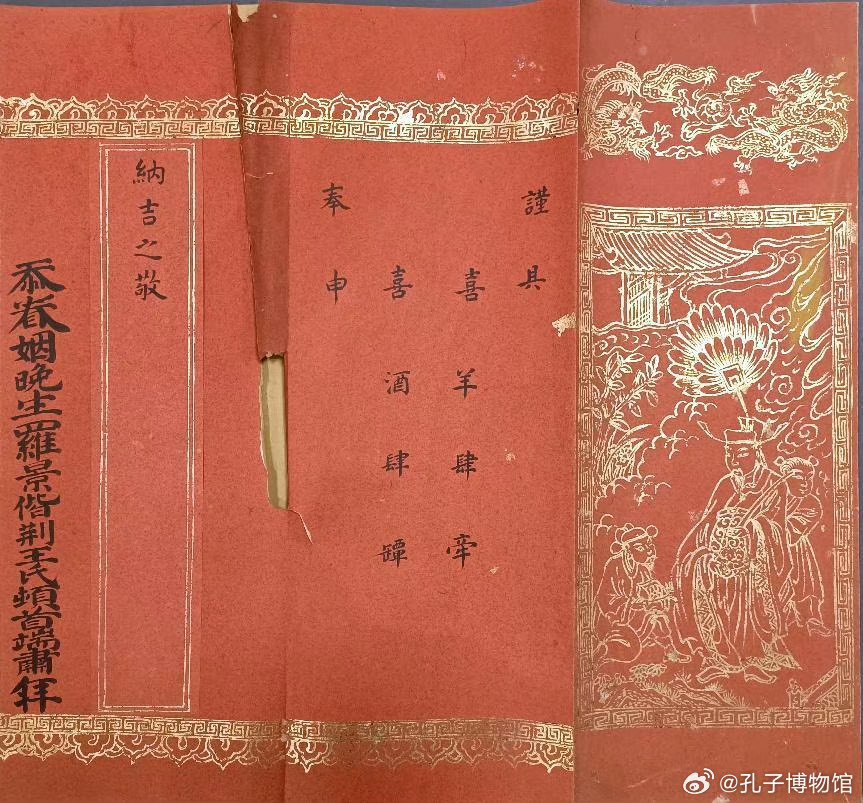 謹具
喜羊肆牽
喜酒肆罈
奉申
納吉之敬
忝眷姻晚生羅景偕荆王氏頓首端肅拜
@孔子博物馆